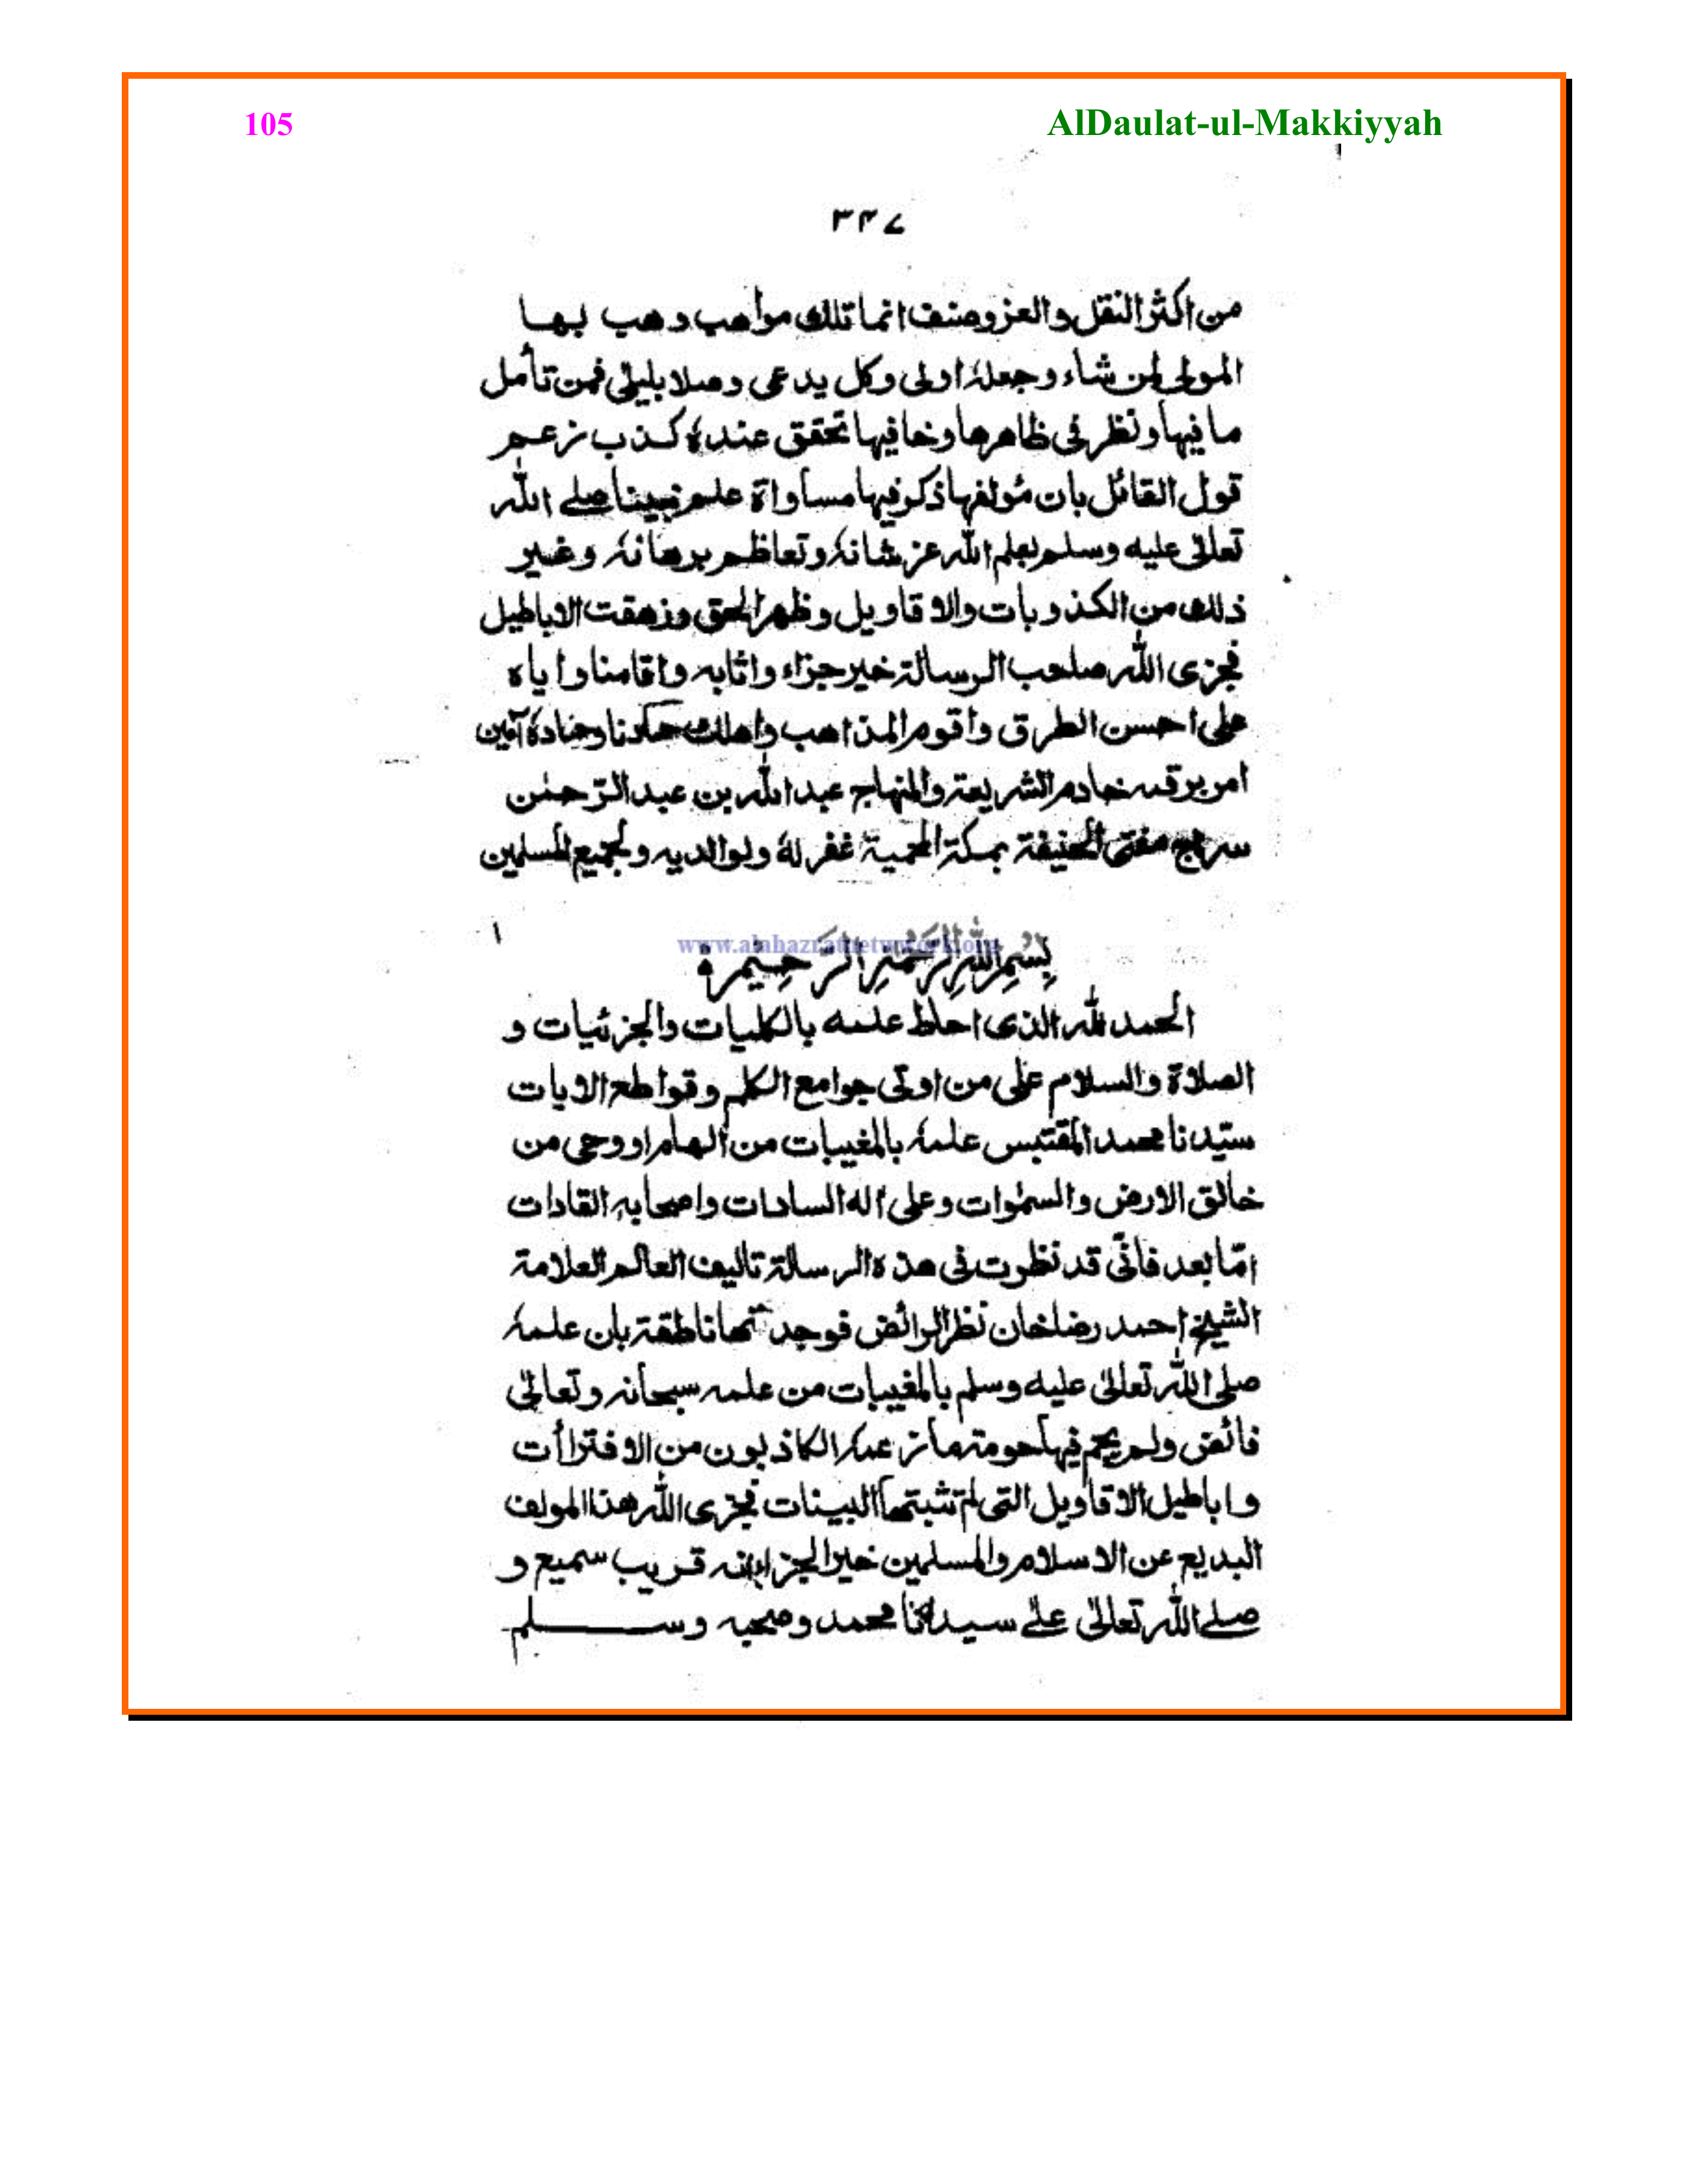 105 AlDaulat-ul-Makkiyyah
۳۴۷
من اكثر النقل والعزو صنف انما تلك مواهب وهب بها
المولى لمن شاء وجعله اولى وكل يدعى وصلا بليلىٰ فمن تأمل
ما فيها ونظر فى ظاهرها وخافيها تحقق عنده كذب زعم
قول القائل بان مؤلفها ذكر فيها مساواة علم نبينا صلے الله
تعالىٰ عليه وسلم بعلم الله عز شانهٗ وتعاظم برهانهٗ وغير
ذلك من الكذوبات والاقاويل وظهر الحق وزهقت الاباطيل
فجزى الله صاحب الرسالة خير جزاء واثابه واقامنا واياه
على احسن الطرق واقوم المذاهب واهلك وضاده آمين
امر برقمه خادم الشريعة والمنهاج عبد الله بن عبد الرّحمٰن
سراج مفتى الحنيفة بمكة المحمية غفر لهٗ ولوالديه ولجميع المسلمين
۱
www.alahazratnetwork.org
بِسْمِ اللهِ الرَّحْمٰنِ الرَّحِيْمِ ہ
الحمد لله الذى احاط علمه بالكليات والجزئيات و
الصلاة والسلام على من اوتى جوامع الكلم وقواطع الايات
سيّدنا محمد المقتبس علمهٗ بالمغيبات من الهام او وحى من
خالق الارض والسمٰوات وعلى اله السادات واصحابه القادات
امّا بعد فانّى قد نظرت فى هذه الرسالة تاليف العالم العلامة
الشيخ احمد رضاخان نظر الرائض فوجدتها ناطقة بان علمهٗ
صلى الله تعالىٰ عليه وسلم بالمغيبات من علمه سبحانه وتعالىٰ
فائض ولم يحم فيها حومة ما زعمه الكاذبون من الافتراأت
واباطيل الاقاويل التى لم تثبتها البينات فجزى الله هذا المولف
البديع عن الاسلام والمسلمين خير الجزاء انه قريب سميع و
صلے الله تعالىٰ علےٰ سيدنا محمد وصحبه وسلم